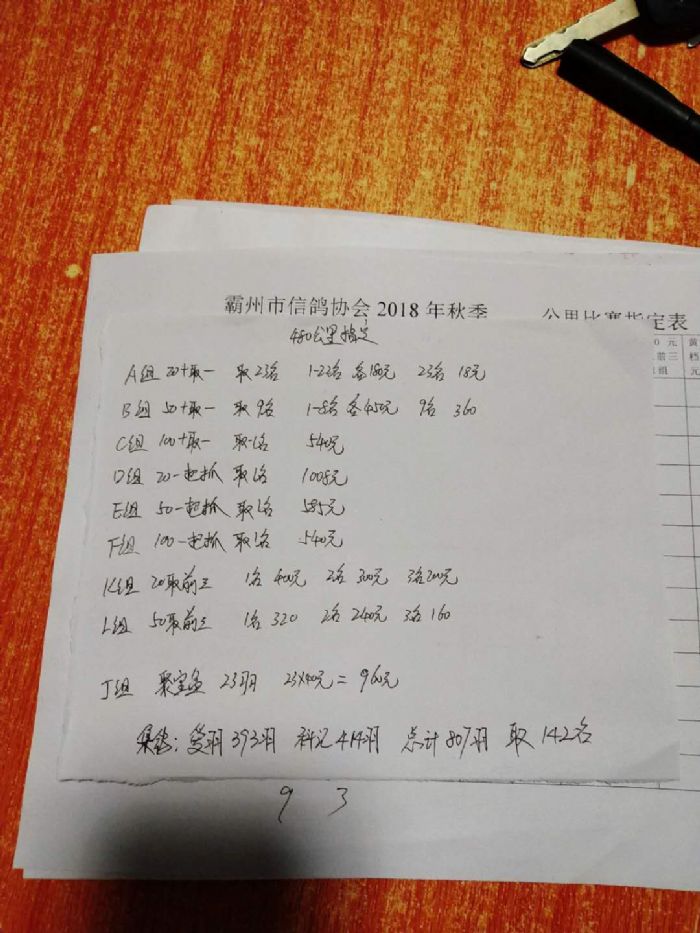 霸州市信鸽协会 2018 年秋季 公里比赛指定表
480公里指定
A组 20+取一 取23名 1-22名 各180元 23名 18元
B组 50+取一 取9名 1-8名 各450元 9名 360
C组 100+取一 取1名 540元
D组 20一起抓 取1名 1008元
E组 50一起抓 取1名 585元
F组 100一起抓 取1名 540元
K组 20取前三 1名 400元 2名 300元 3名200元
L组 50取前三 1名 320 2名 240元 3名 160
J组 聚宝盆 23羽 23×40元 = 960元
集鸽: 受羽 393羽 科记 414羽 总计 807羽 取 142名
9 3
0 元 黄
前三 档
组 元